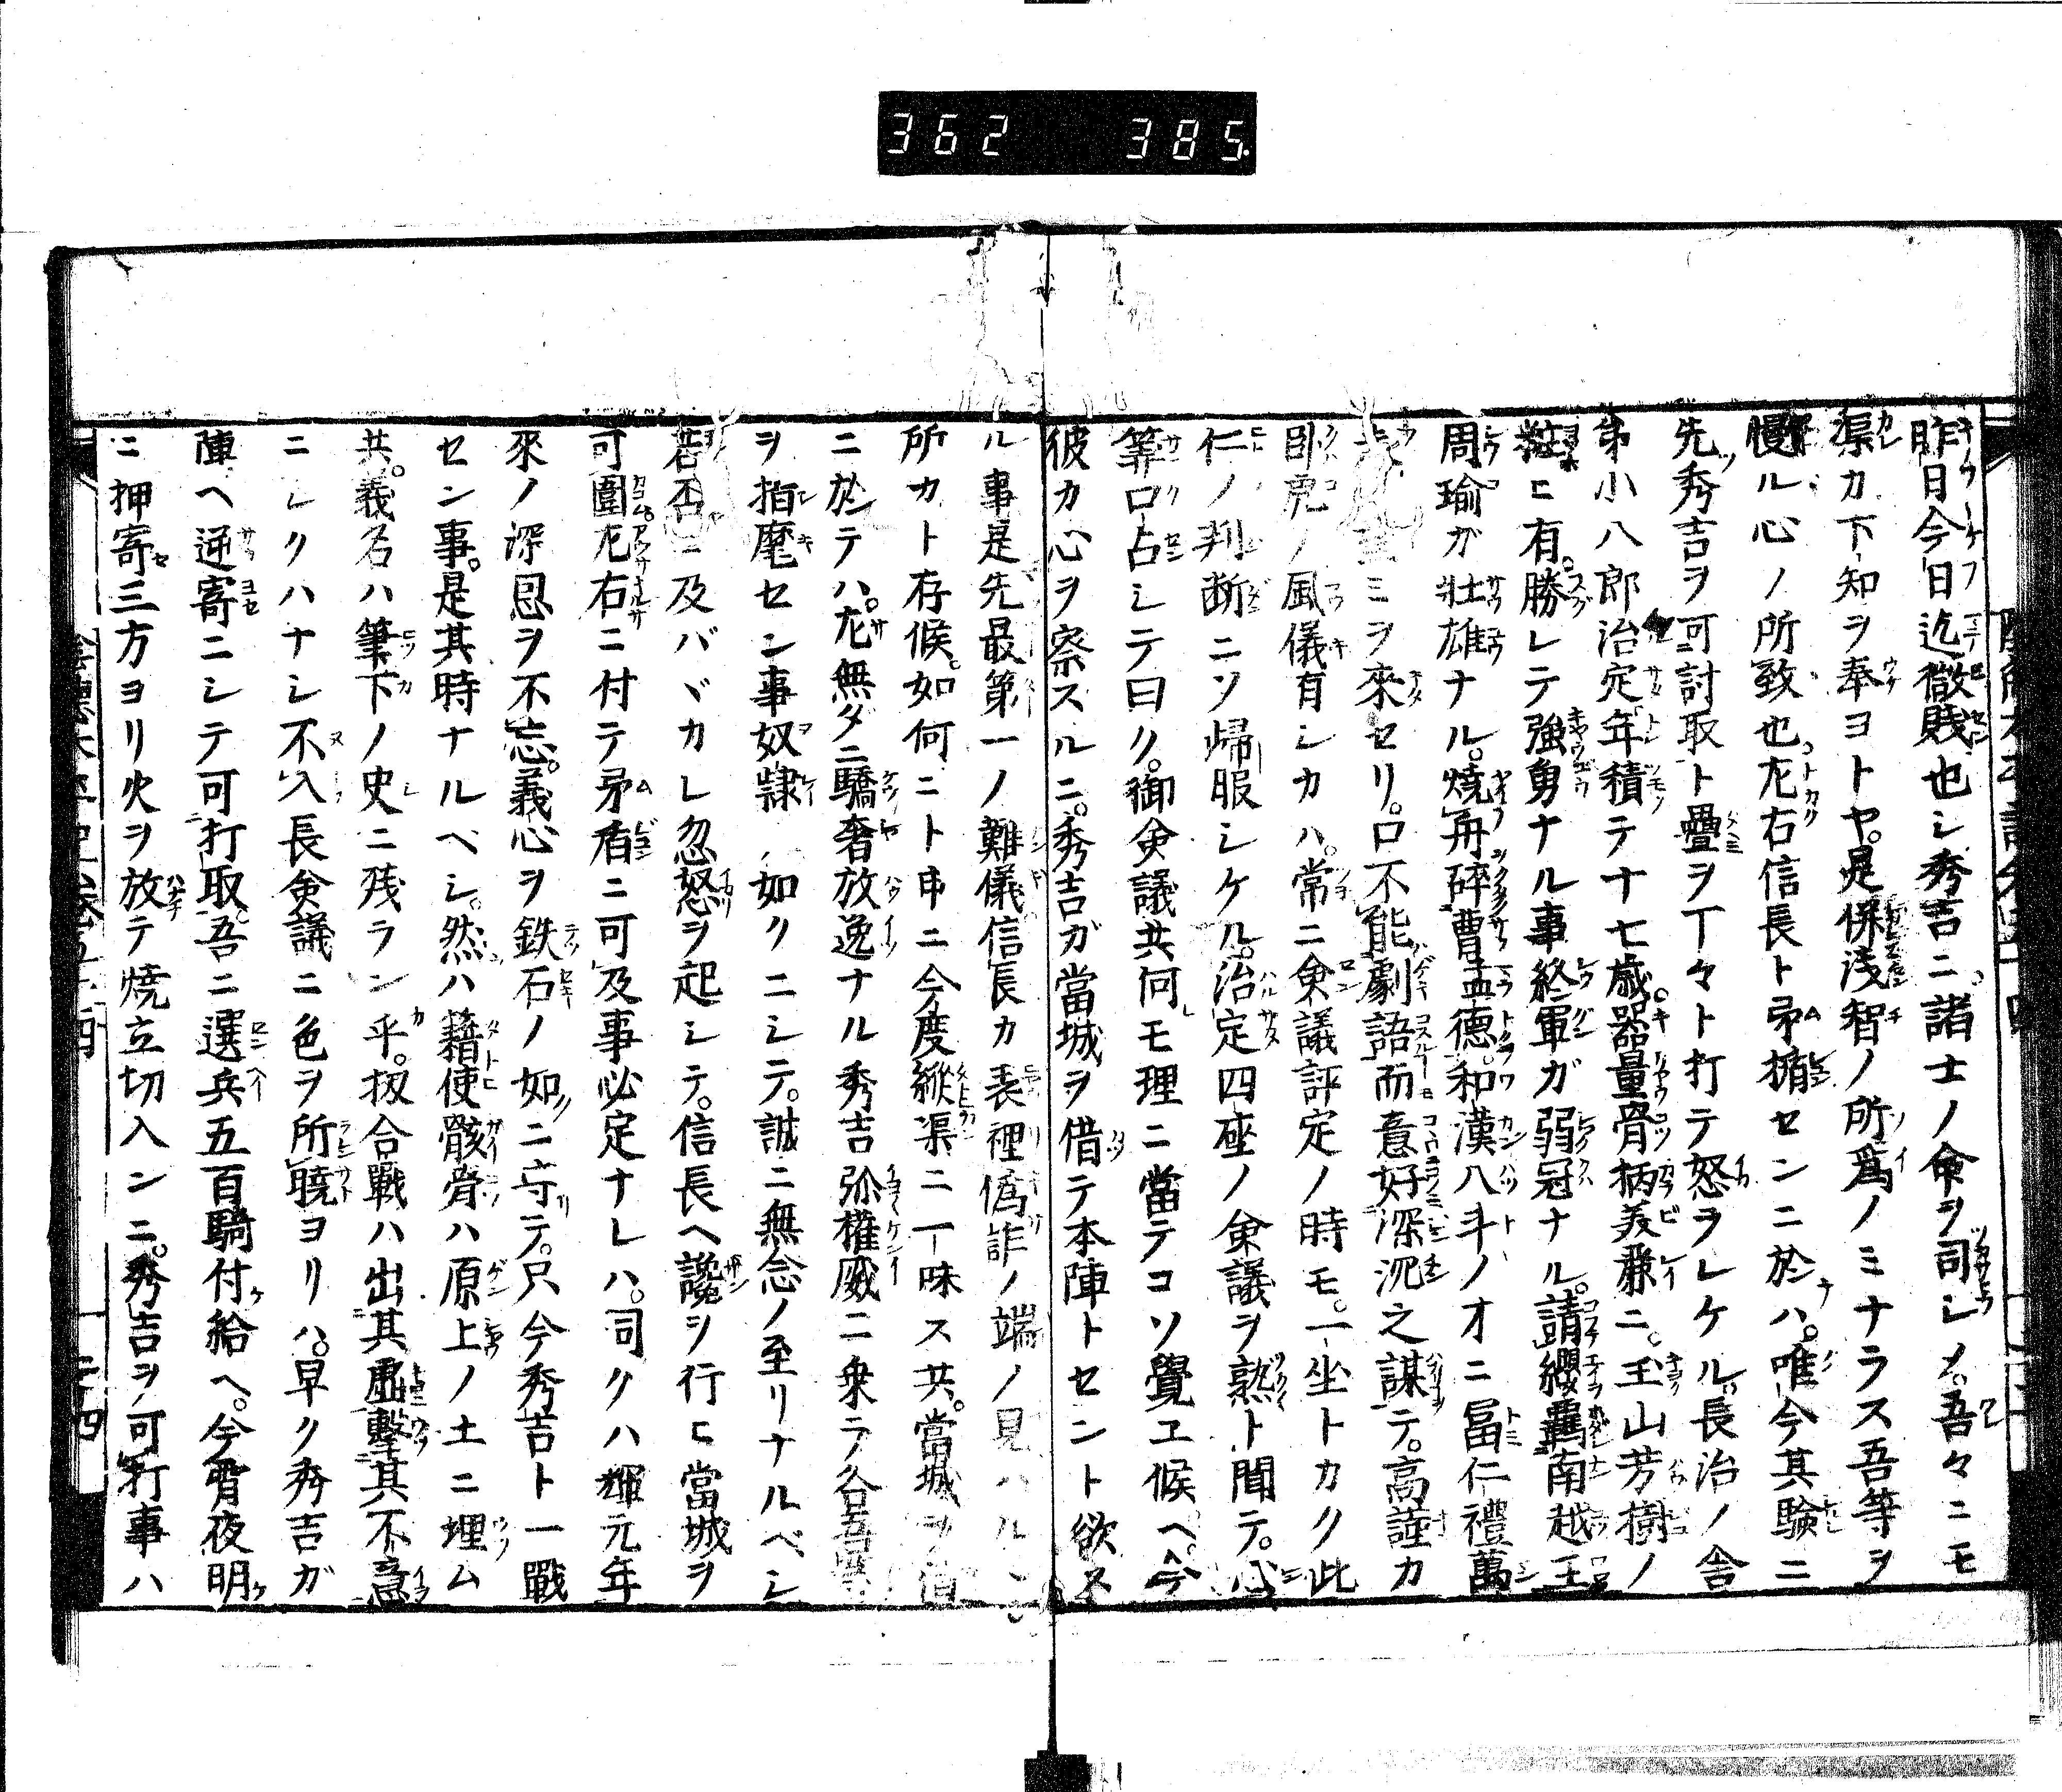 362 385.
昨日今日迄微賤也シ秀吉ニ諸士ノ命ヲ司シメ。吾々ニモ
渠カ下知ヲ奉ヨトヤ。是併浅智ノ所爲ノミナラス吾等ヲ
慢ル心ノ所致也。左右信長ト矛楯センニ於ハ。唯今其験ニ
先秀吉ヲ可討取ト疊ヲ丁々ト打テ怒ラレケル。長治ノ舎
弟小八郎治定年積テ十七歳。器量骨柄美兼ニ。玉山芳樹ノ
粧ヒ有。勝レテ強勇ナル事終軍ガ弱冠ナル。請纓羈南越王
周瑜ガ壮雄ナル。焼舟碎曹孟德。和漢八斗ノオニ冨仁禮萬
ミヲ來セリ。口不能劇語而意好深沉之謀テ。高諠カ
卧虎ノ風儀有シカハ。常ニ僉議評定ノ時モ。一坐トカク此
仁ノ判断ニソ帰服シケル。治定四座ノ僉議ヲ熟ト聞テ。心
算口占シテ曰ク。御僉議共何モ理ニ當テコソ覺エ候ヘ。今
彼カ心ヲ察スルニ。秀吉ガ當城ヲ借テ本陣トセント欲ス
ル事是先最第一ノ難儀信長カ表裡僞詐ノ端ノ見ハルヽ
所カト存候。如何ニト申ニ今度縱渠ニ一味ス共。當城ヲ借
ニ於テハ。左無タニ驕奢放逸ナル秀吉弥權威ニ乗テ各吾黨
ヲ指麾セン事奴隷ノ如クニシテ。誠ニ無念ノ至リナルベシ
若否ニ及バヾカレ忽怒ヲ起シテ。信長ヘ讒ヲ行ヒ當城ヲ
可圍左右ニ付テ矛盾ニ可及事必定ナレハ。司クハ輝元年
來ノ深恩ヲ不忘。義心ヲ鉄石ノ如ニ守テ。只今秀吉ト一戰
セン事。是其時ナルベシ。然ハ藉使骸骨ハ原上ノ土ニ埋ム
共。義名ハ筆下ノ史ニ残ラン乎。扨合戰ハ出其虚撃其不意
ニシクハナシ不入長僉議ニ色ヲ所曉ヨリハ。早ク秀吉ガ
陣ヘ逆寄ニシテ可打取。吾ニ選兵五百騎付給ヘ。今宵夜明
ニ押寄三方ヨリ火ヲ放テ焼立切入ンニ。秀吉ヲ可打事ハ